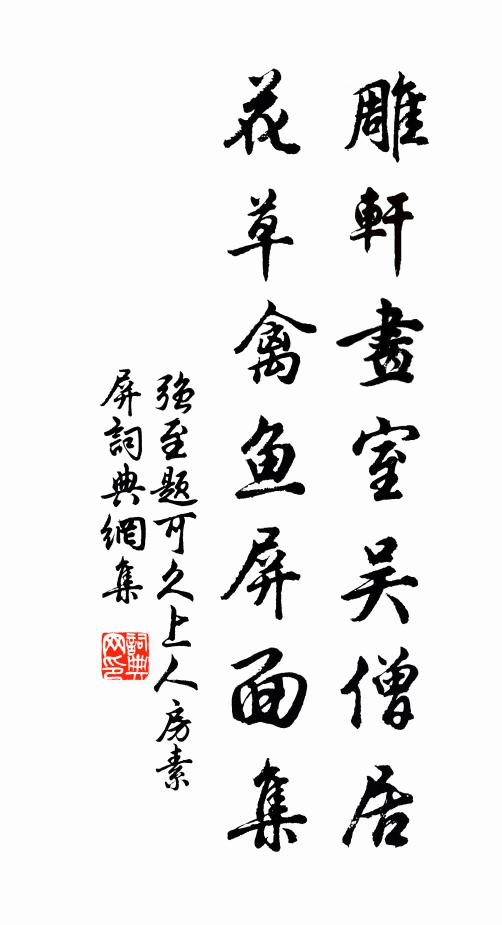 雕軒畫室吴僧居
花草禽鱼屏面集
强至题可久上人房素
屏詞典網集
詞典网印